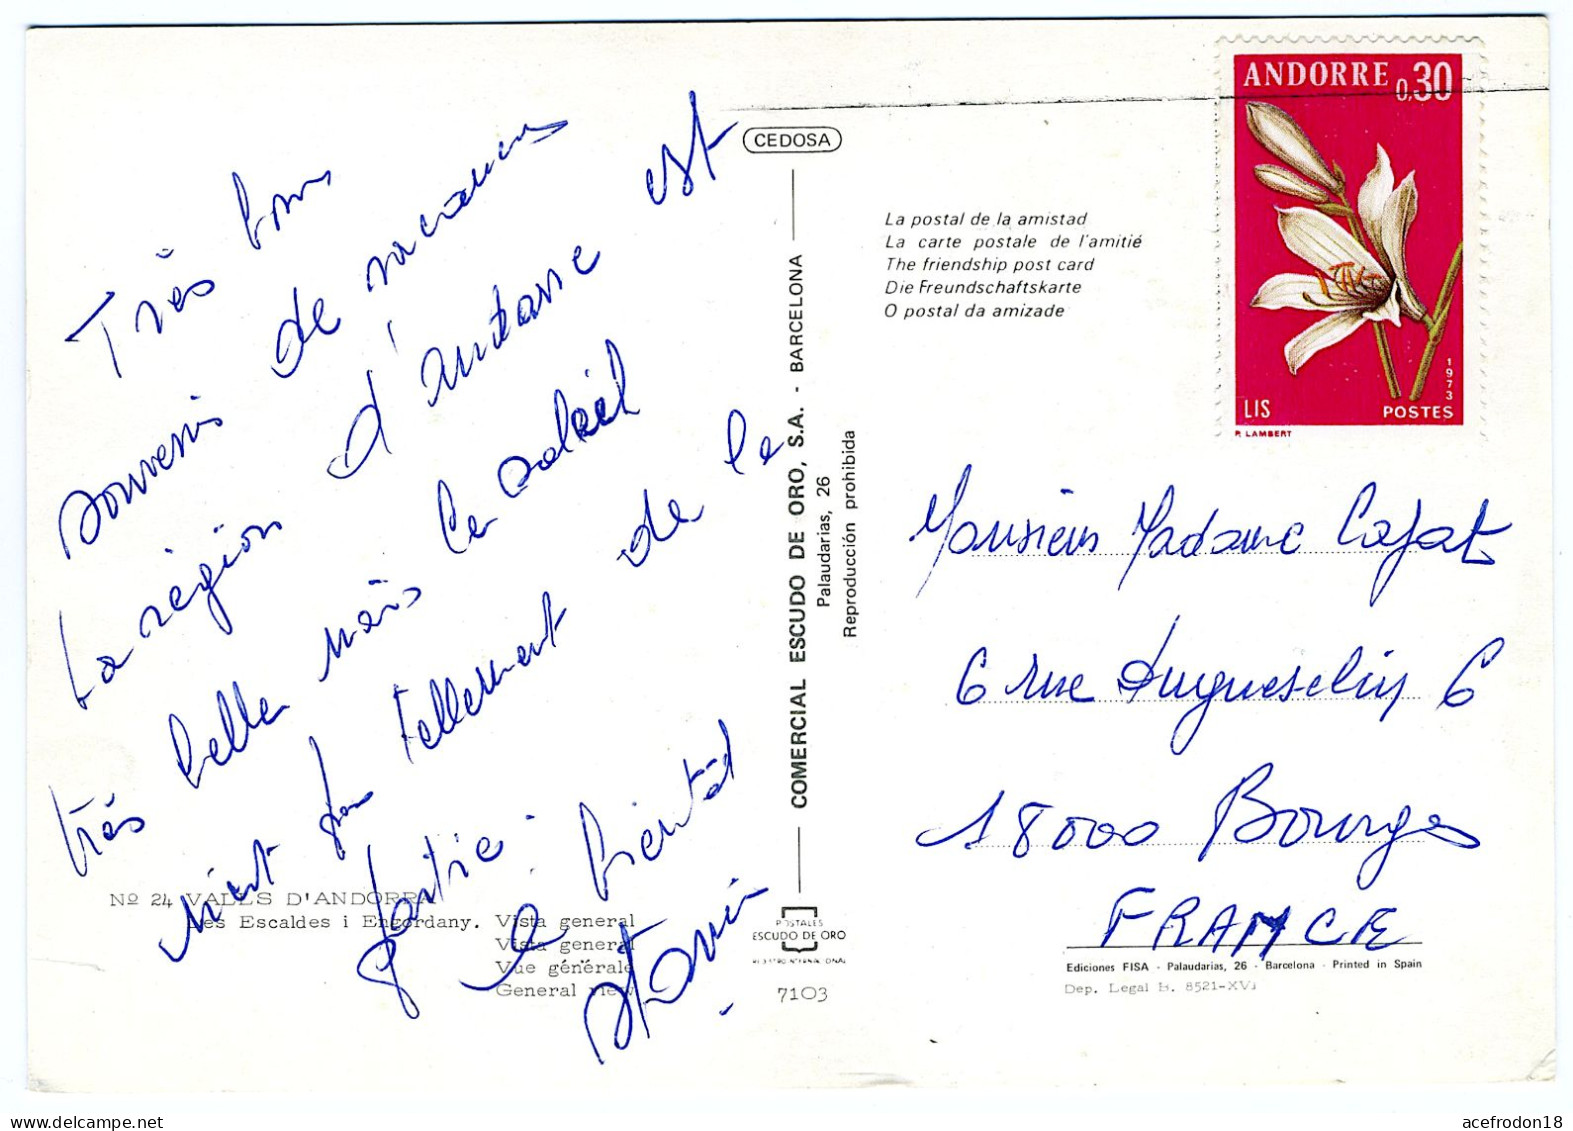 Très bons
souvenirs de vacances
La région d'Andorre est
très belle mais le soleil
n'est pas tellement de la
partie.
à bientôt
CEDOSA
COMERCIAL ESCUDO DE ORO, S.A. - BARCELONA
Palaudarias, 26
Reproducción prohibida
La postal de la amistad
La carte postale de l'amitié
The friendship post card
Die Freundschaftskarte
O postal da amizade
ANDORRE 0,30
1973
LIS POSTES
P. LAMBERT
Monsieur Madame Cafat
6 rue Duguesclin 6
18000 Bourges
FRANCE
Nº 24 VALLS D'ANDORRA
Les Escaldes i Engordany. Vista general
Vista general
Vue générale
General view
POSTALES
ESCUDO DE ORO
REGISTRO INTERNACIONAL
7103
Ediciones FISA - Palaudarias, 26 - Barcelona - Printed in Spain
Dep. Legal B. 8521-XVI
acefrodon18